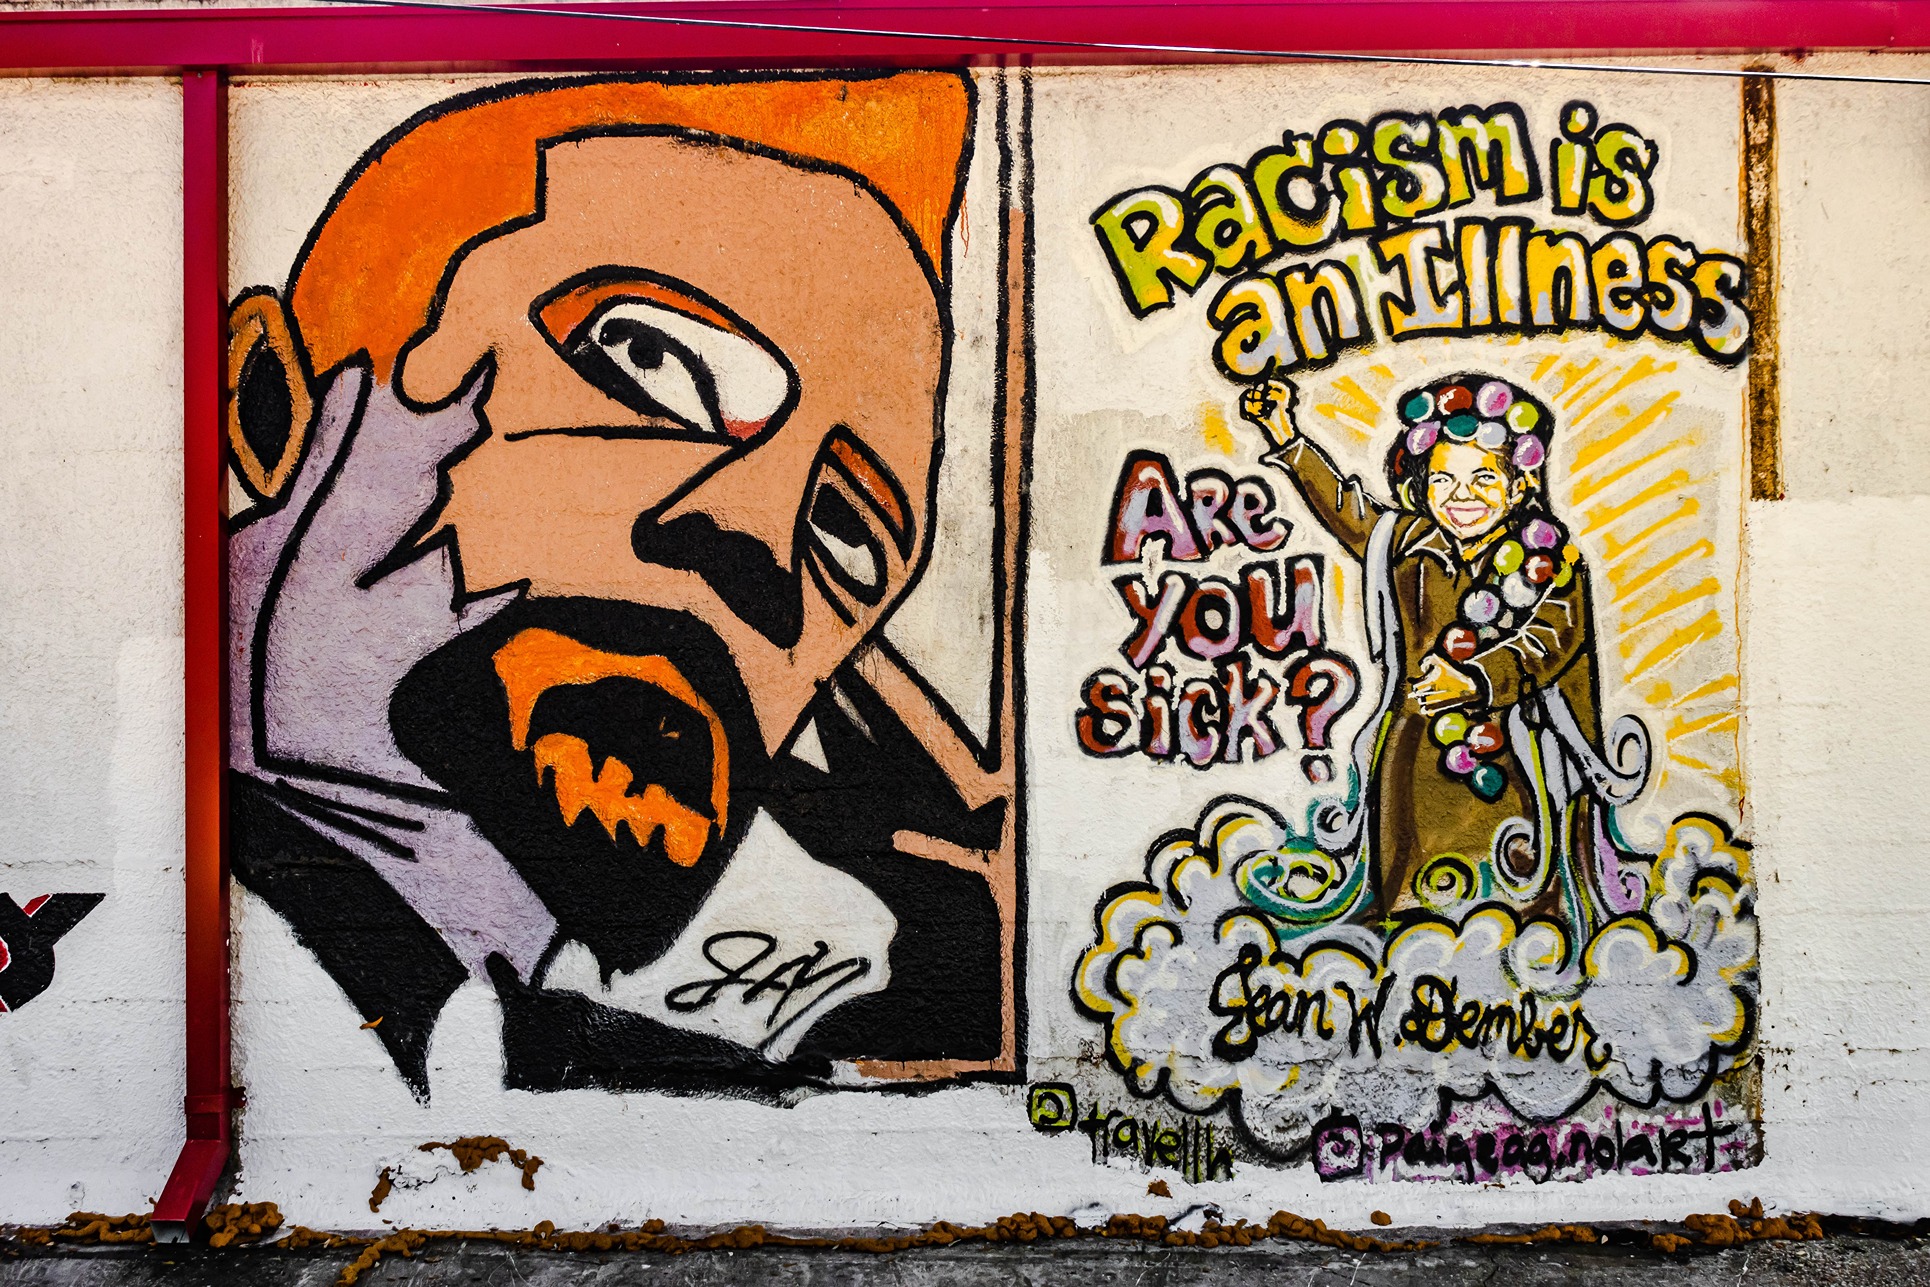 Racism is
an Illness
Are
you
sick?
JAY
Jean W. Dember
travelllh
paigeag.nolart